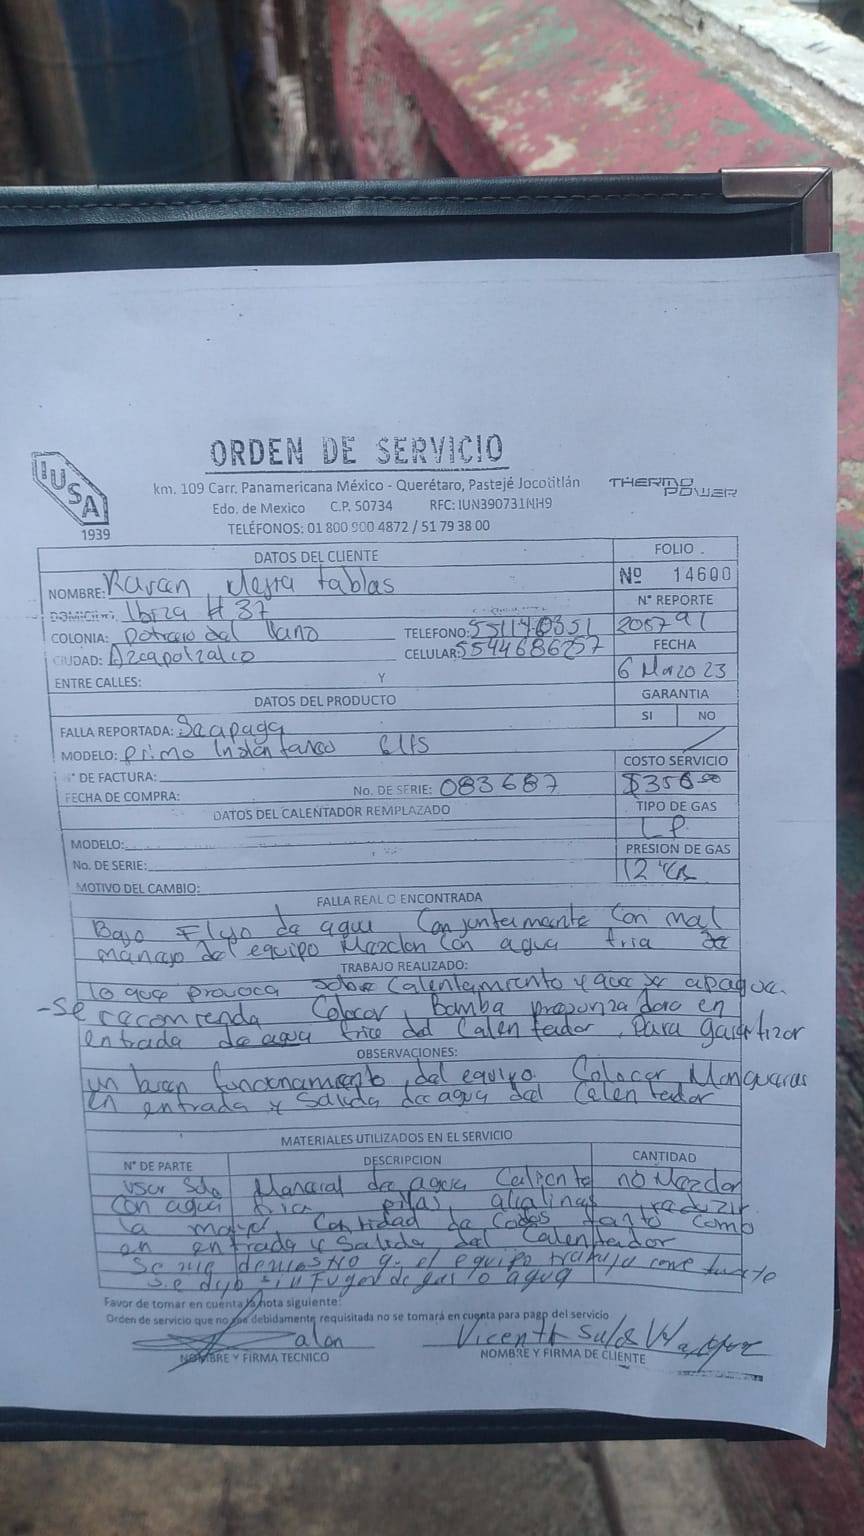 ORDEN DE SERVICIO
IUSA
1939
km. 109 Carr. Panamericana México - Querétaro, Pastejé Jocotitlán
Edo. de Mexico C.P. 50734 RFC: IUN390731NH9
TELÉFONOS: 01 800 900 4872 / 51 79 38 00
THERMO POWER
DATOS DEL CLIENTE
FOLIO
Nº 14600
NOMBRE: tablas
DOMICILIO: Ibiza # 37
Nº REPORTE
COLONIA: potrero del llano TELEFONO:
205791
CIUDAD: Azcapotzalco CELULAR: 5544686257
FECHA
ENTRE CALLES: Y
6 Marzo 23
DATOS DEL PRODUCTO
GARANTIA
SI NO
FALLA REPORTADA: Se apaga
MODELO: primo Instantaneo 6 lts
N° DE FACTURA:
COSTO SERVICIO
FECHA DE COMPRA: No. DE SERIE: 083687
DATOS DEL CALENTADOR REMPLAZADO
TIPO DE GAS
LP.
MODELO:
PRESION DE GAS
No. DE SERIE:
12
MOTIVO DEL CAMBIO:
FALLA REAL O ENCONTRADA
Bajo Flujo de agua Conjuntamente Con mal
manejo del equipo Mezclan Con agua fria
TRABAJO REALIZADO:
lo que provoca sobre Calentamiento y que se apague.
-se recomienda Colocar Bomba presurizadora en
entrada de agua fria del Calentador. Para garantizar
OBSERVACIONES:
un buen funcionamiento del equipo. Colocar Mangueras
en entrada y Salida de agua del Calentador
MATERIALES UTILIZADOS EN EL SERVICIO
N° DE PARTE DESCRIPCION CANTIDAD
usar Solo Maneral de agua Caliente no Mezclar
Con agua fria pilas alcalinas reduzir
la mayor Cantidad de Codos tanto Como
en entrada y Salida del Calentador
Se me demostro q. el equipo trabaja
se dejo sin Fugas de gas o agua
Favor de tomar en cuenta la nota siguiente:
Orden de servicio que no sea debidamente requisitada no se tomará en cuenta para pago del servicio
alan Vicente
NOMBRE Y FIRMA TECNICO NOMBRE Y FIRMA DE CLIENTE